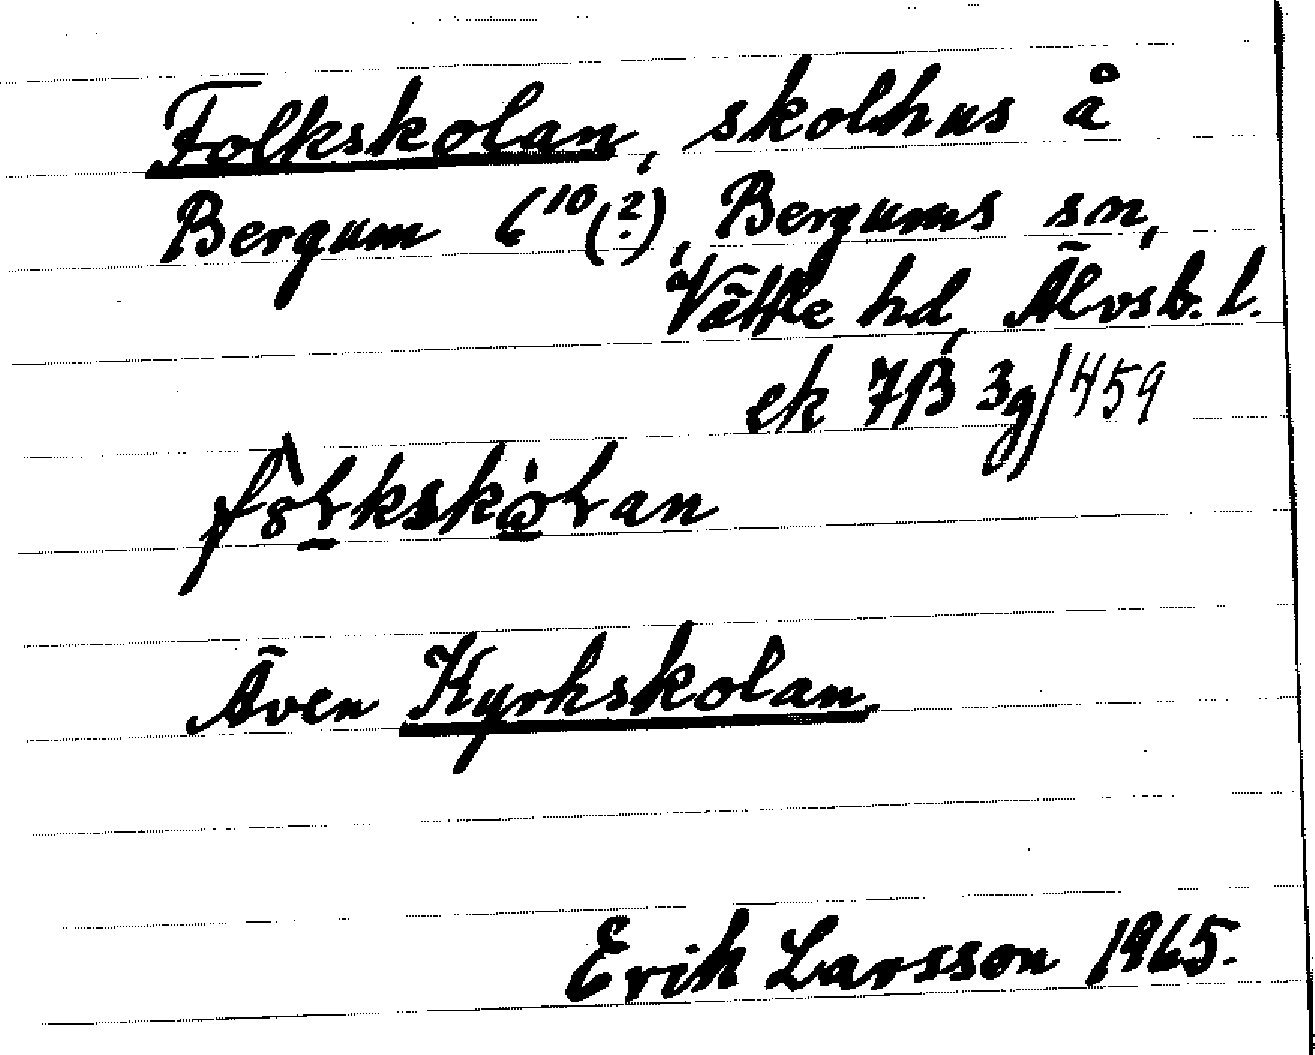 Folkskolan, skolhus å
Bergum 6¹⁰(?), Bergums sn,
Vättle hd, Älvsb. l.
ek 7B 3g/459
Även Kyrkskolan.
Erik Larsson 1965.